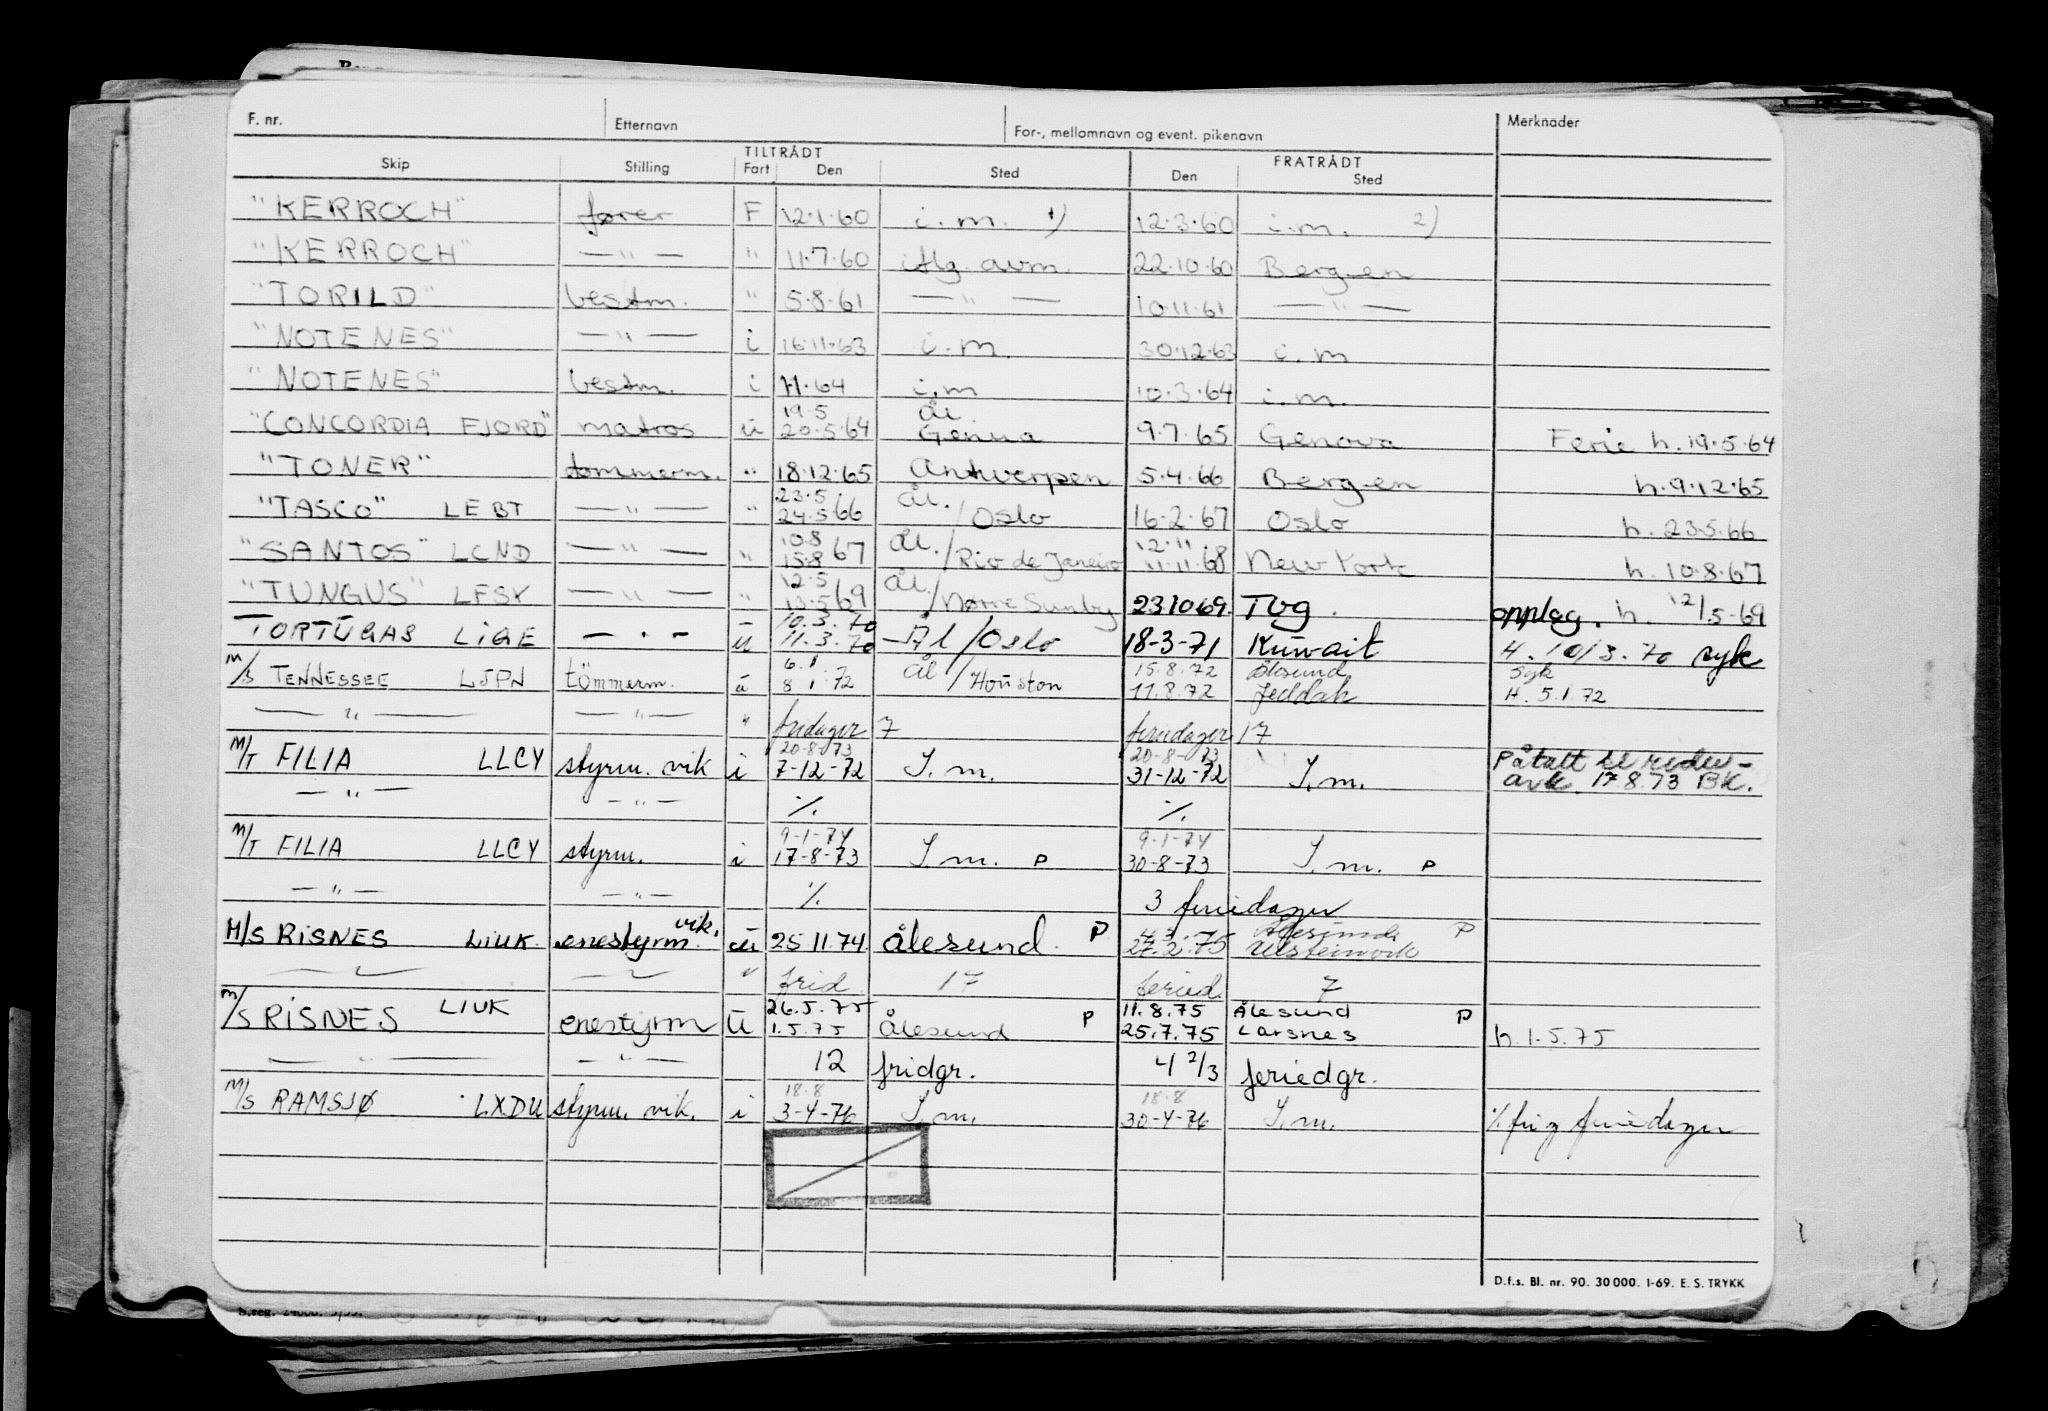 F. nr. Etternavn For-, mellomnavn og event. pikenavn Merknader
TILTRÅDT FRATRÅDT
Skip Stilling Fart Den Sted Den Sted
"KERROCH" fører F 12.1.60 i.m. 1) 12.3.60 i.m. 2)
"KERROCH" — " — " 11.7.60 alg. avm. 22.10.60 Bergen
"TORILD" bestm. " 5.8.61 — " — 10.11.61 — " —
"NOTENES" — " — i 16.11.63 i.m. 30.12.63 i.m
"NOTENES" bestm. i 1.1.64 i.m 10.3.64 i.m.
19.5 Ål
"CONCORDIA FJORD" matros u 20.5.64 Genua 9.7.65 Genova Ferie h. 19.5.64
"TONER" tømmerm. " 18.12.65 Antwerpen 5.4.66 Bergen h.9.12.65
23.5 Ål.
"TASCO" LEBT — " — " 24.5.66 /Oslo 16.2.67 Oslo h. 23.5.66
10.8 Ål. 12.11
"SANTOS" LCND — " — " 15.8 67 /Rio de Janeiro 11.11.68 New York h. 10.8.67
12.5 Ål.
"TUNGUS" LFSK — " — " 13.5 69 /Nørre Sundby 23.10.69. Tbg. opplag. h. 12/5-69
10.3.70
TORTUGAS LIGE — " — u 11.3.70 Ål/Oslo 18-3-71 Kuwait H. 10/3.70 syk
6.1 Ål 15.8.72 Ålesund Syk
M/S TENNESSEE LJPN tömmerm. u 8.1.72 /Houston 11.8.72 Jeddah H. 5.1.72
— " — — " — " fridager 7 feriedager 17
20-8-73 20-8-73 Påtalt til rederi-
M/T FILIA LLCY styrm. vik i 7-12-72 I.m. 31-12-72 I.m. avk. 17.8.73 BK.
— " — — " — ./. ./.
9-1-74 9-1-74
M/T FILIA LLCY styrm. i 17-8-73 I.m. P 30-8-73 I.m. P
— " — — " — ./. 3 feriedager
vik. Ålesund P
M/S RISNES LIUK enestyrm. u 25.11.74 Ålesund P 27.2.75 Ulsteinvik
— " — — " — " frid. 17 feried. 7
26.5.75 11.8.75 Ålesund P
M/S RISNES LIUK enestyrm u 1.5.75 Ålesund P 25.7.75 Larsnes h. 1.5.75
— " — — " — 12 fridgr. 4 2/3 feriedgr.
18.8 18.8
M/S RAMSJØ LXDU styrm. vik. i 3-4-76 I.m. 30-4-76 I.m. ./. fri og feriedager
D.f.s. Bl. nr. 90. 30 000. 1-69. E. S. TRYKK